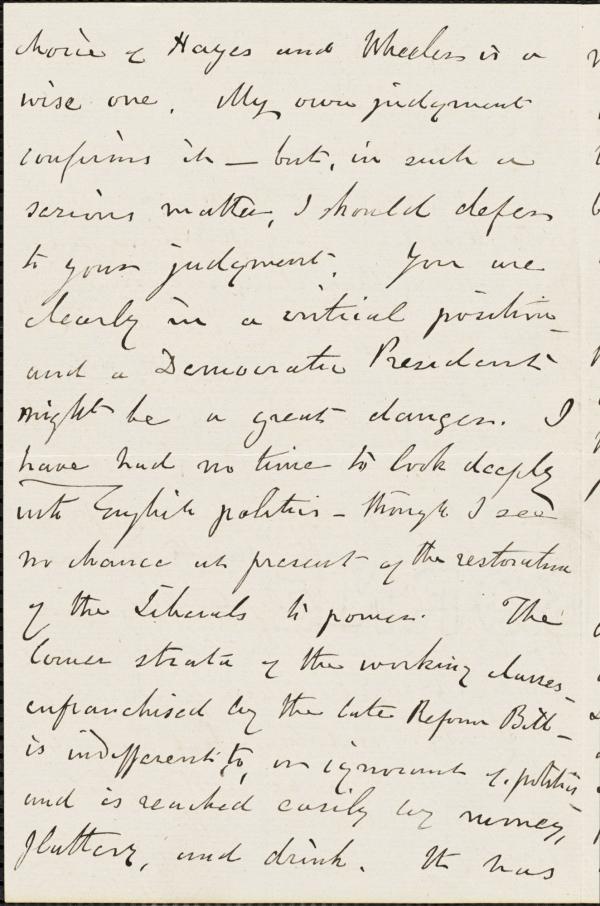 choice of Hayes and Wheeler is a
wise one. My own judgment
confirms it — but, in such a
serious matter, I should defer
to your judgment. You are
clearly in a critical position —
and a Democratic President
might be a great danger. I
have had no time to look deeply
into English politics — though I see
no chance at present of the restoration
of the Liberals to power. The
lower strata of the working classes —
enfranchised by the late Reform Bill —
is indifferent to, or ignorant of, politics
and is reached easily by money,
flattery, and drink. It has